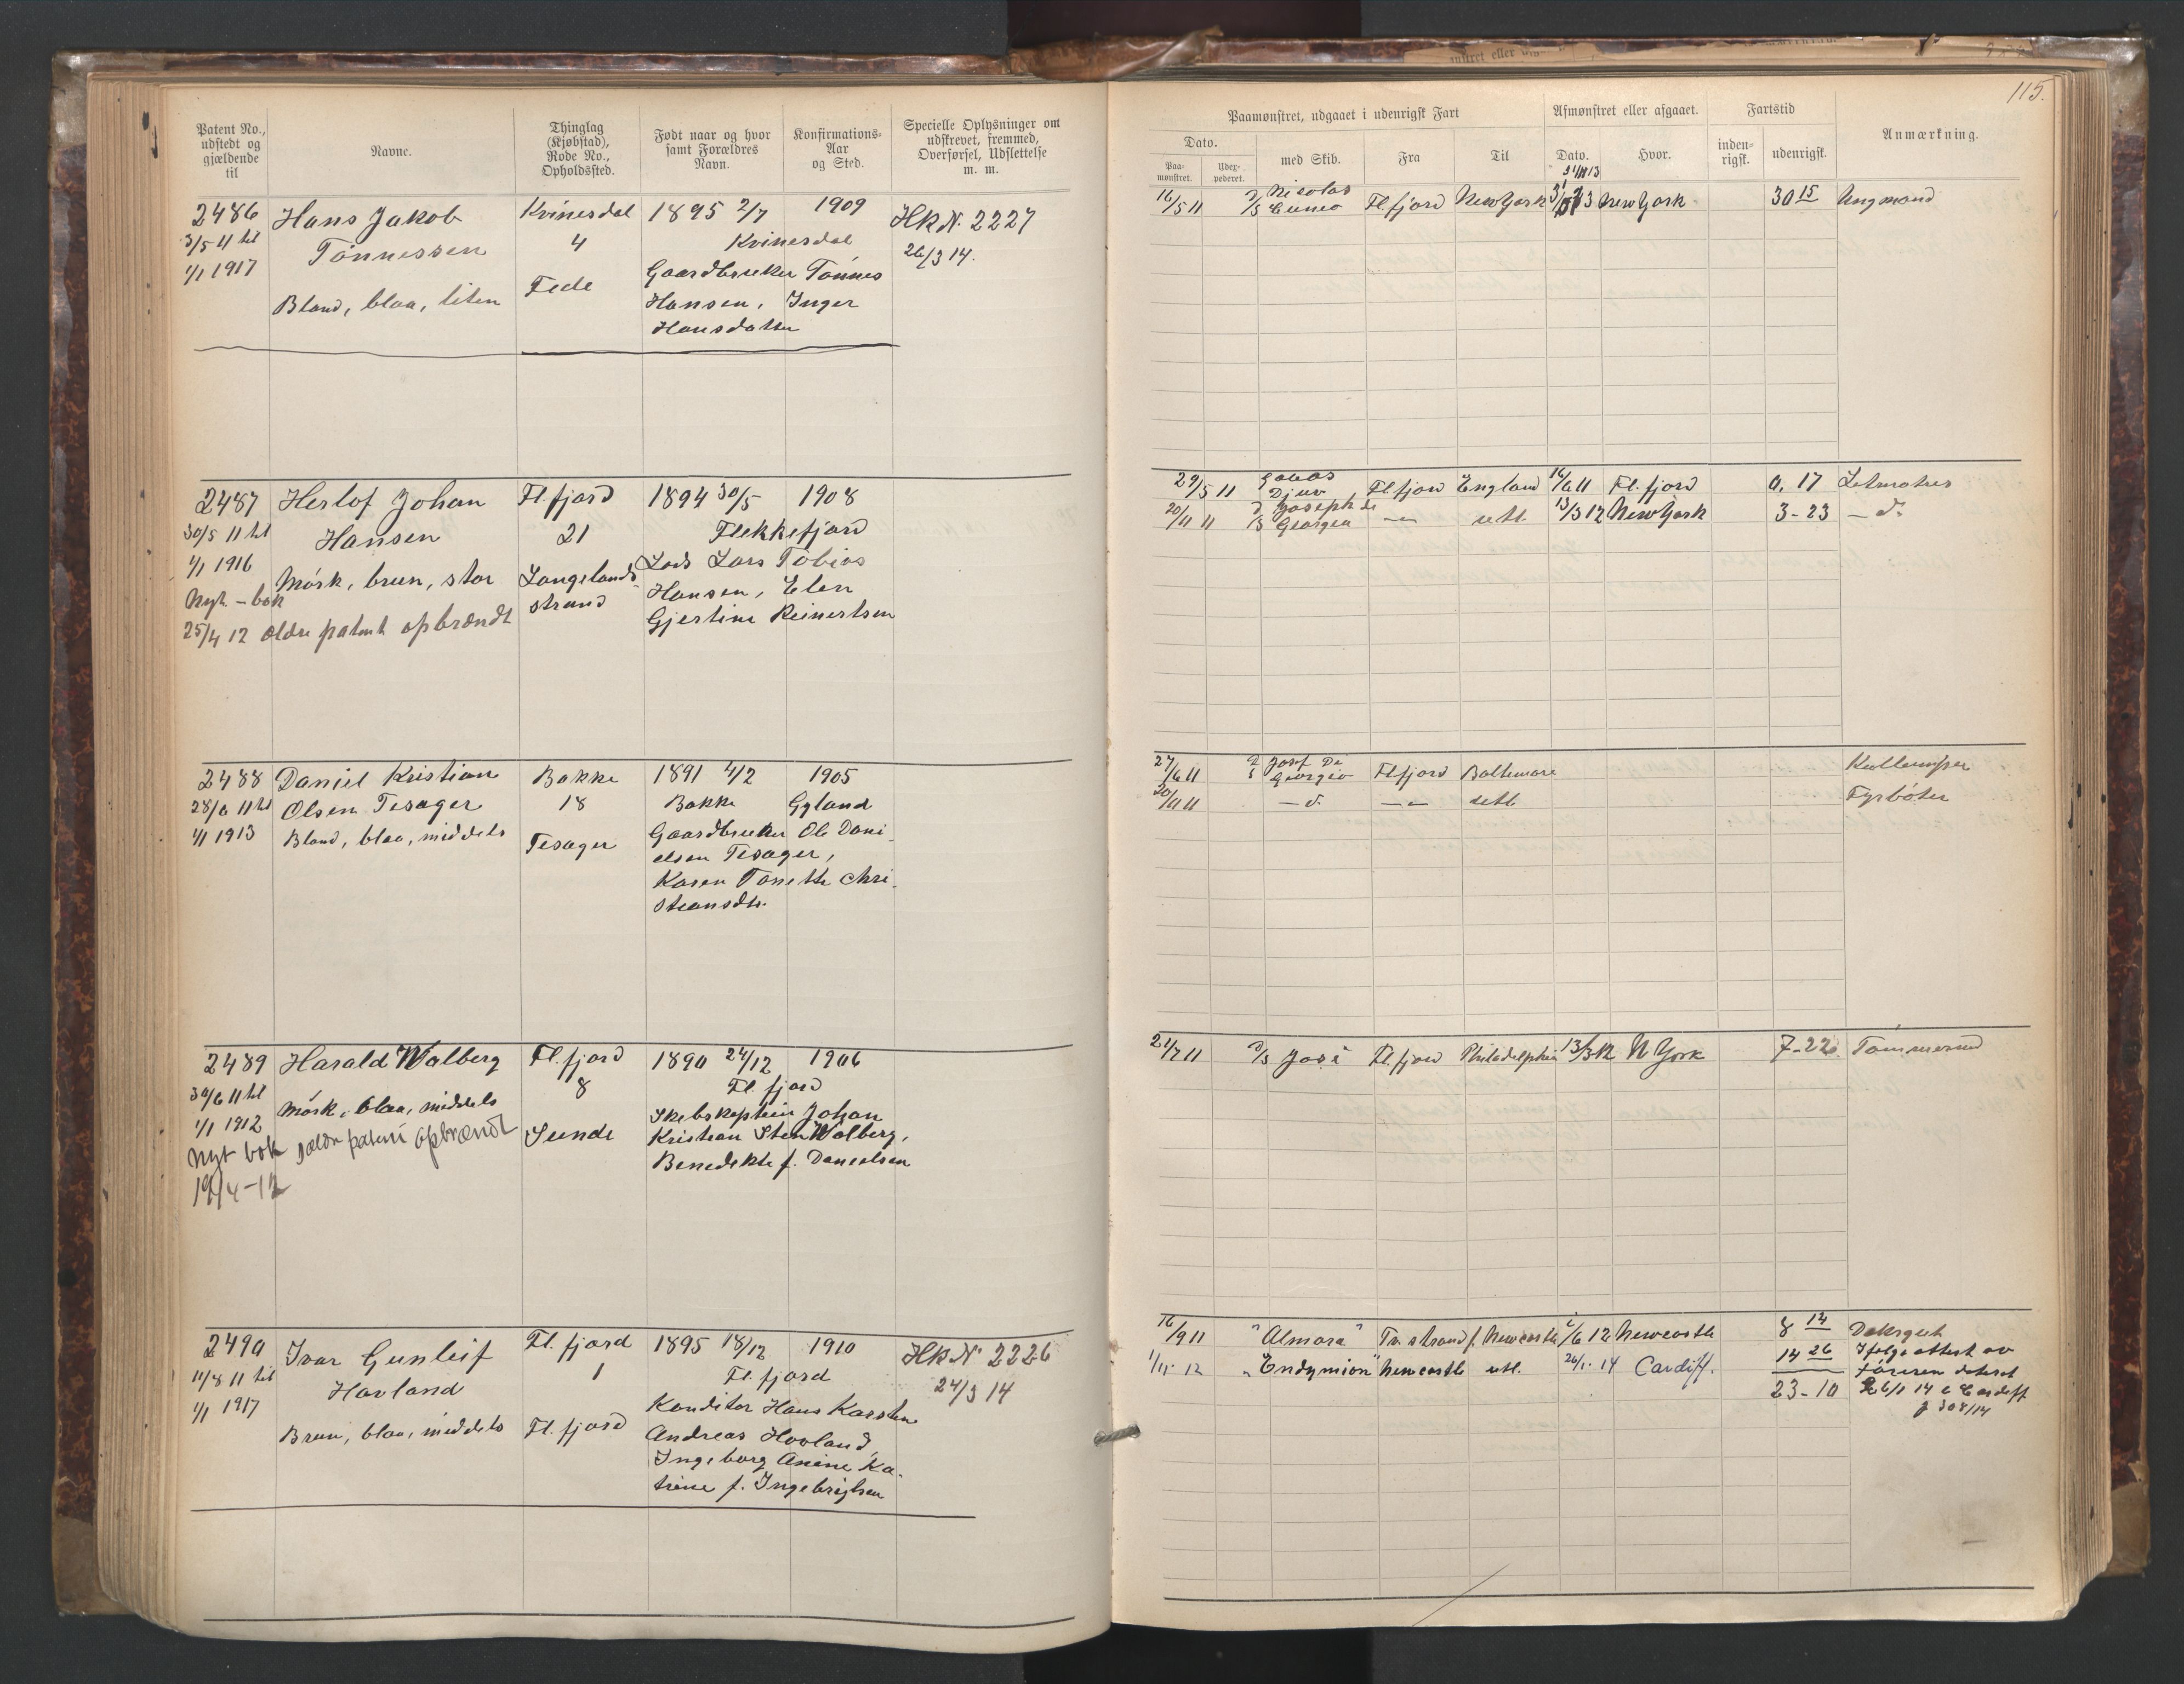 115.
Patent No., udstedt og gjældende til
Navne.
Thinglag (Kjøbstad), Rode No., Opholdssted.
Født naar og hvor samt Forældres Navn.
Konfirmations-Aar og Sted.
Specielle Oplysninger om udskrevet, fremmed, Overførsel, Udslettelse m. m.
Paamønstret, udgaaet i udenrigsk Fart
Dato.
Paa-mønstret.
med Skib.
Fra
Til
Afmønstret eller afgaaet.
Dato.
Hvor.
Fartstid
inden-rigsk.
udenrigsk.
Anmærkning.
2486 Hans Jakob Kvinesdal 1895 2/7 1909 HkN. 2227
3/5 11 til Tønnessen 4 Kvinesdal 26/3 14.
1/1 1917 Fede Gaardbruker Tønnes
Bland, blaa, liten Hansen, Inger
Hansdatter
16/5 11 D/S Nicolas Cuneo Fl.fjord New York New York 30 15 Ungmand
2487 Herlof Johan Fl.fjord 1894 30/5 1908
30/5 11 til Hansen 21 Flekkefjord
1/1 1916 Mørk, brun, stor Langelands- Lods Lars Tobias
Nyt - bok strand Hansen, Elen
25/4 12 ældre patent opbrændt Gjertine Reinertsen
29/5 11 Djuv Fl.fjord England 16/6 11 Fl.fjord 0. 17 Letmatros
20/11 11 D/S Joseph de Georgia — " — utl. 13/3 12 New York 3 - 23 — d.
2488 Daniel Kristian Bakke 1891 4/2 1905
28/6 11 til Olsen Tesager 18 Bakke Gyland
1/1 1913 Bland, blaa, middels Tesager Gaardbruker Ole Dani-
elsen Tesager,
Karen Tonette Chri-
stiansdtr.
27/6 11 D/S Josef Di Georgio Fl.fjord Baltimore Kullemper
30/11 11 — d. — " — utl. Fyrbøter
2489 Harald Walberg Fl.fjord 1890 24/12 1906
30/6 11 til Mørk, blaa, middels 8 Fl.fjord
1/1 1912 Sunde Skibskaptein Johan
Nyt bok, ældre patent opbrændt Kristian Sten Walberg,
19/4-12 Benedikte f. Danielsen
21/7 11 D/S Josi Fl.fjord Philadelphia 13/3 12 N York 7-22. Tømmermd
2490 Ivar Gunleif Fl.fjord 1895 18/12 1910 HkN. 2226
11/8 11 til Havland 1 Fl.fjord 24/3 14
1/1 1917 Brun, blaa, middels Fl.fjord Konditor Hans Karsten
Andreas Hovland,
Ingeborg Anine Ka-
trine f. Ingebrigtsen
16/9 11 "Almora" Tr.strand f. Newcastle 2/6 12 Newcastle 8 14 Dæksgut
1/11 - 12 "Endymion" Newcastle utl. 26/1 - 14 Cardiff. 14 26 Ifølge attest av
23 - 10 føreren dateret
26/1 14 i Cardiff
j 308/14